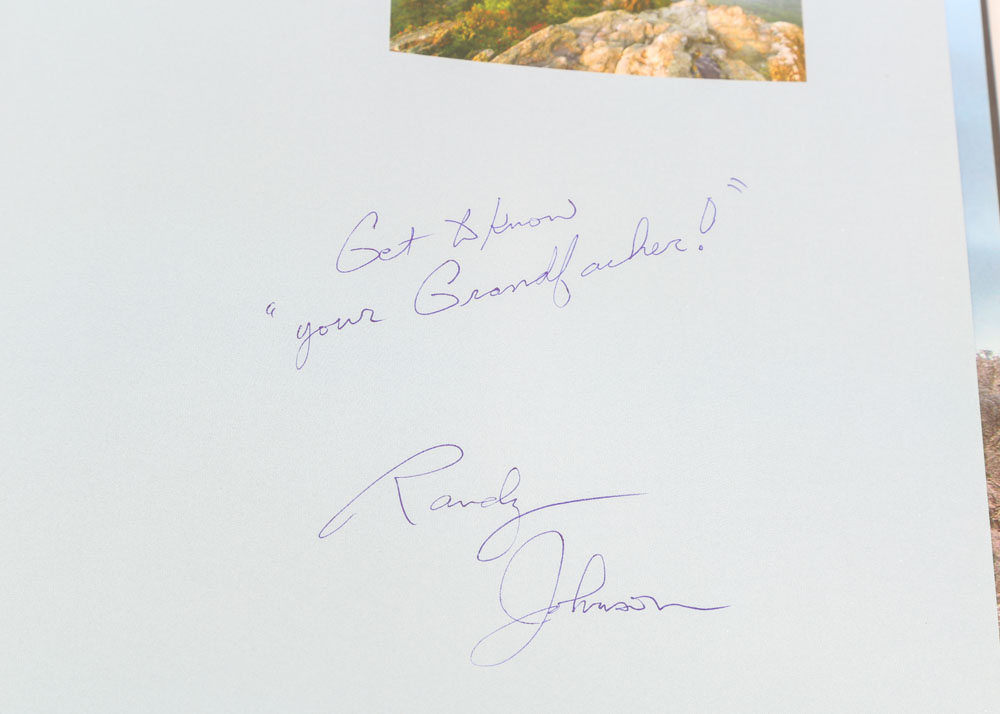 Get to know
"your Grandfather!"
Randy
Johnson